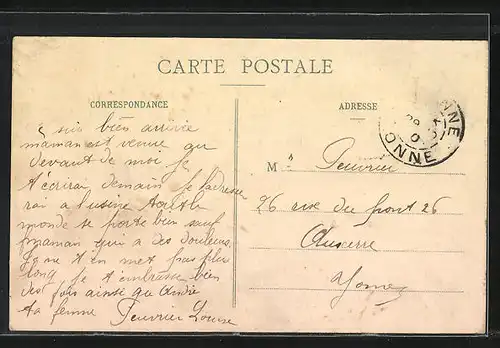 CARTE POSTALE
CORRESPONDANCE
ADRESSE
suis bien arrivée
maman est venue au
devant de moi je
t'écrirai demain je ladresse
rai a l'usine
monde se porte bien sauf
maman qui a des douleurs
je ne t'en met pas plus
long je t'embrasse bien
des fois ainsi que
ta femme Peuvrier Louise
M Peuvrier
26 rue du pont 26
Auxerre
Yonne
ONNE